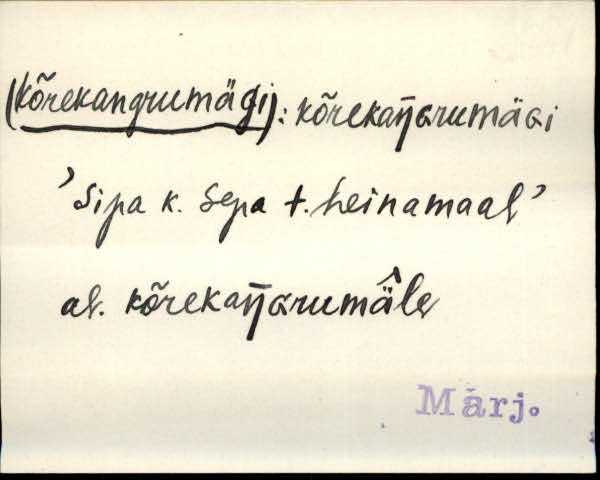 (kõrekangrumägi): kõrekaŋɢrumäɢi
’Sipa k. Sepa t. heinamaal’
al. kõrekaŋɢrumä̂le
Märj.